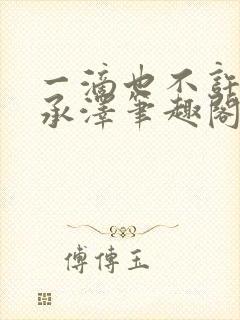 一滴也不許
承澤筆趣閣
傅傳玉